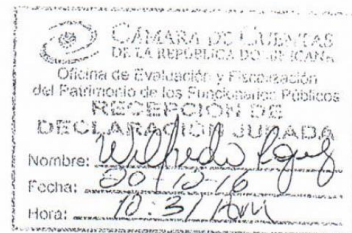 CÁMARA DE CUENTAS
DE LA REPÚBLICA DOMINICANA
Oficina de Evaluación y Fiscalización
del Patrimonio de los Funcionarios Públicos
RECEPCIÓN DE
DECLARACIÓN JURADA
Nombre: Wilfredo
Fecha:
Hora: 10:37 AM